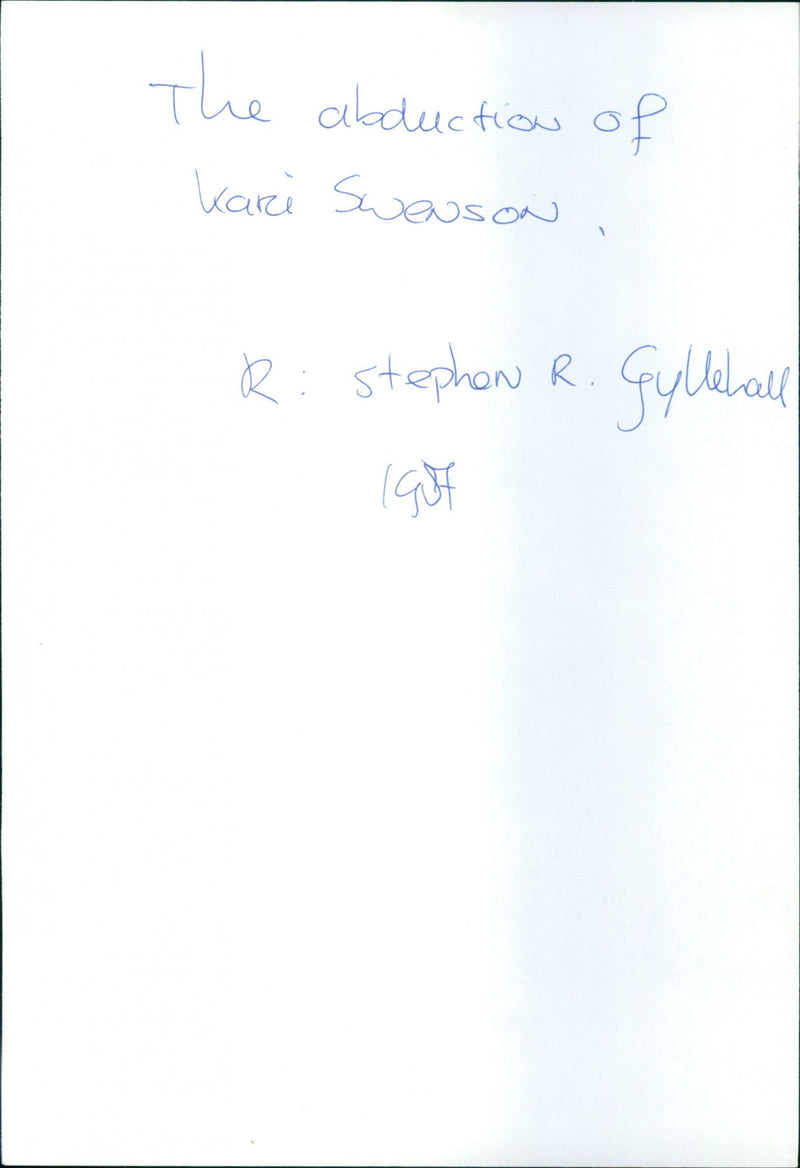 The abduction of
Kari Swenson.
R: Stephen R. Gyllehall
1987